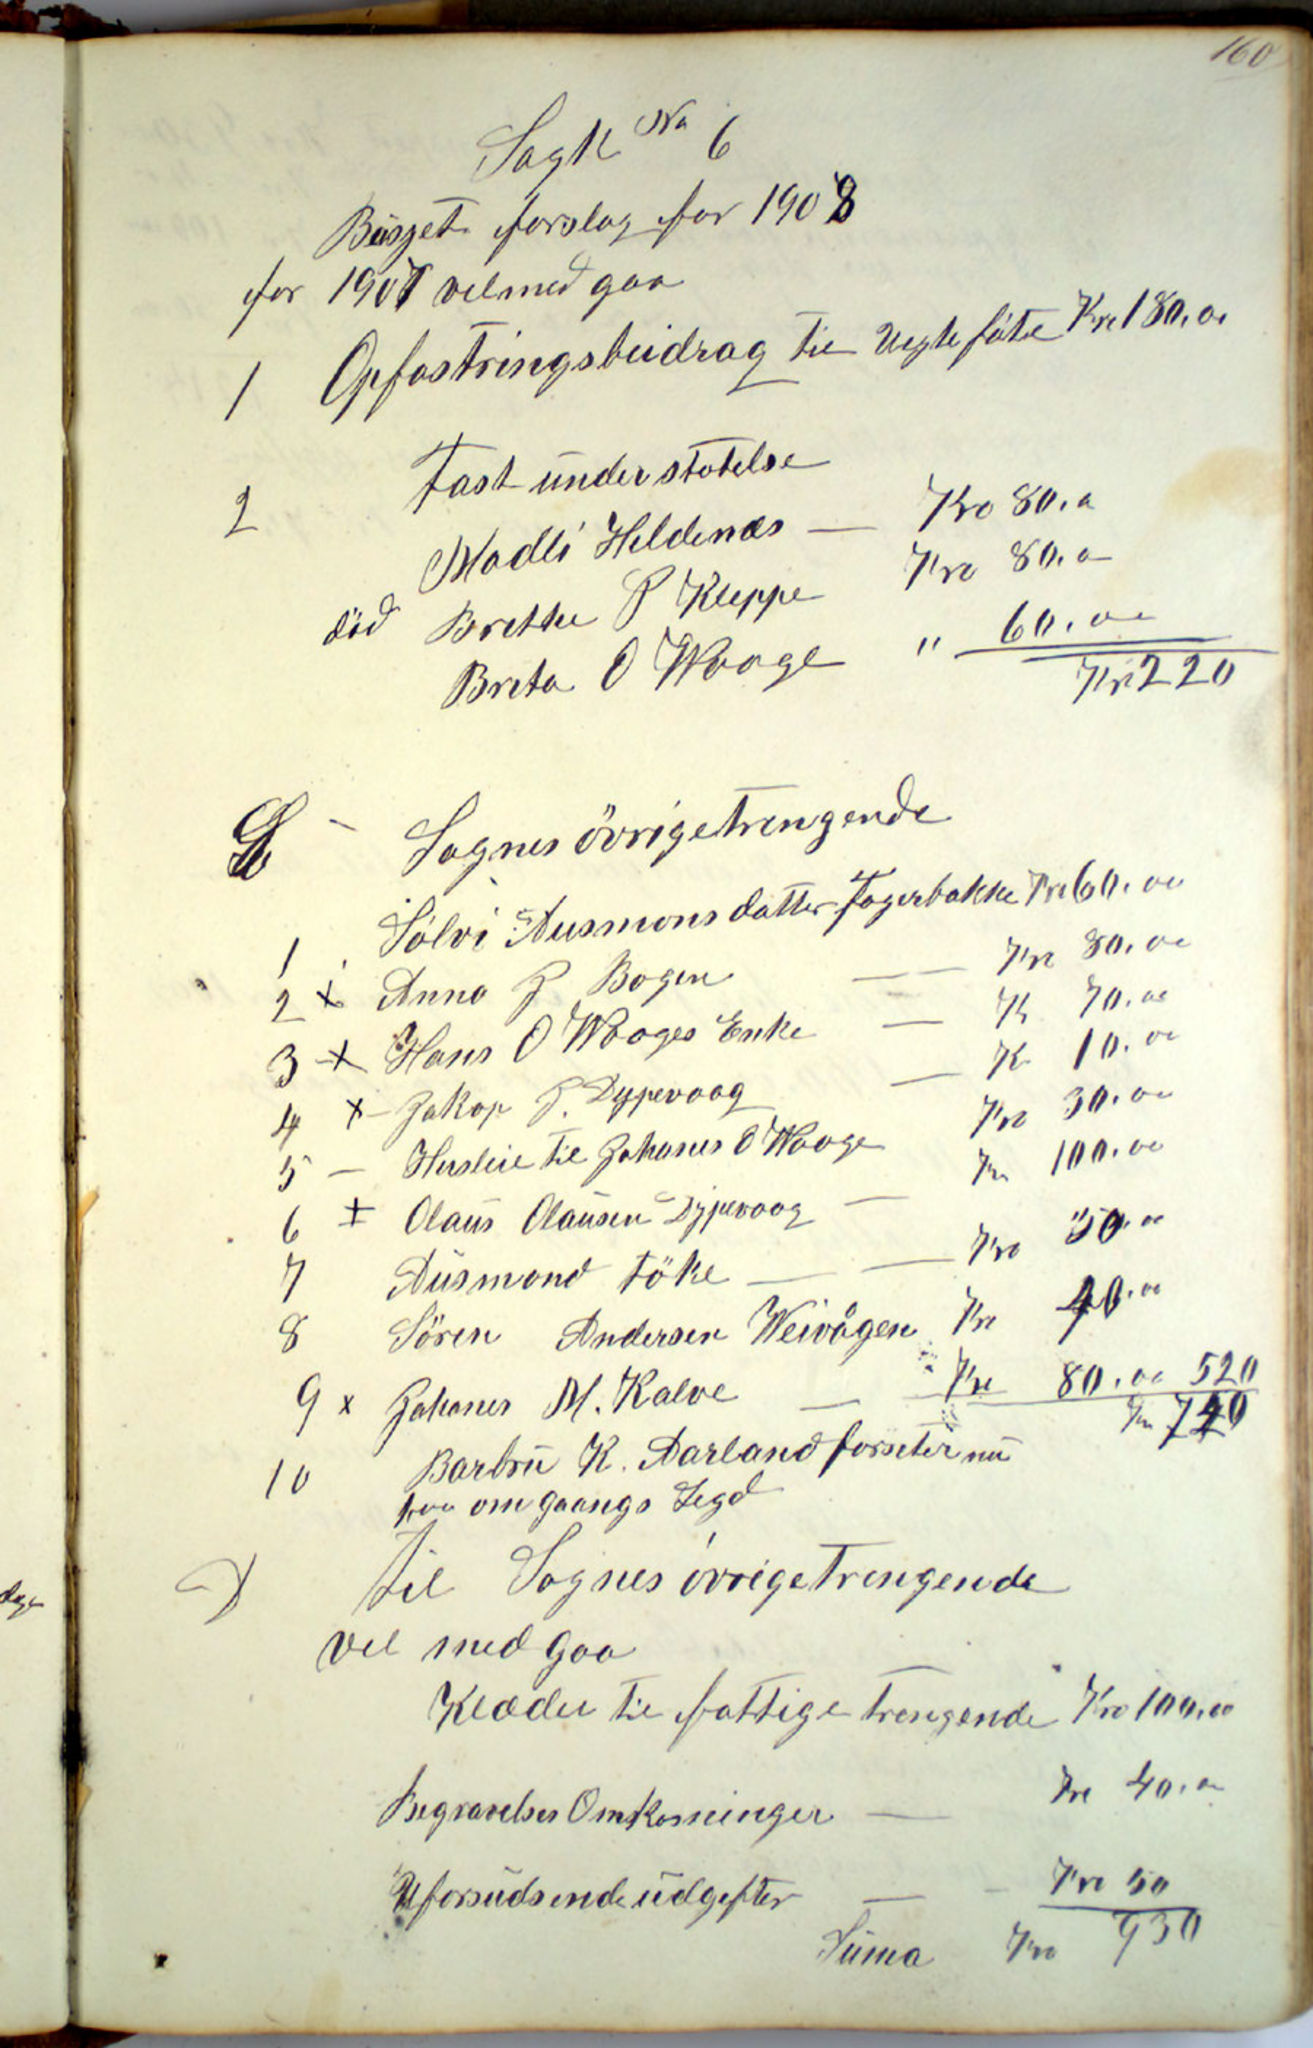 160
Sagk No 6
Büsjet forslag for 1908
for 1907 vel med gaa
1 Opfostringsbeidrag til uegteföte Kr 180,00
2 Fast understötelse
Madli Heldenæs — Kro 80,00
död Brethe P Kleppe Kro 80,00
Breta O Waage " 60,00
Kr 220
Sognes övrige trengende
1 Sölvi Ausmonsdatter Fagerbakke Kr 60,00
2 x Anna J Bogen — — Kr 80,00
3 x Hans O Waages Enke — Kr 70,00
4 x Jakop J. Dypevaag — Kr 10,00
5 — Husleie til Johanes O Waage Kro 30,00
6 x Olaüs Olaüsen Dypevaag — Kr 100,00
7 Aüsmond Töke — — Kro 50,00
8 Sören Andersen Weivågen Kr 40,00
9 x Johanes M. Kalve — Kr 80,00 520
Kr 740
10 Barbrü K. Aarland forseter nü
paa omgaangs Legd
til Sognes övrige trengende
vel med gaa
Klæder til fattige trengende Kro 100,00
Begravelses Omkosninger — Kr 40,00
Uforsüdsende üdgifter — Kro 50
Süma Kro 930